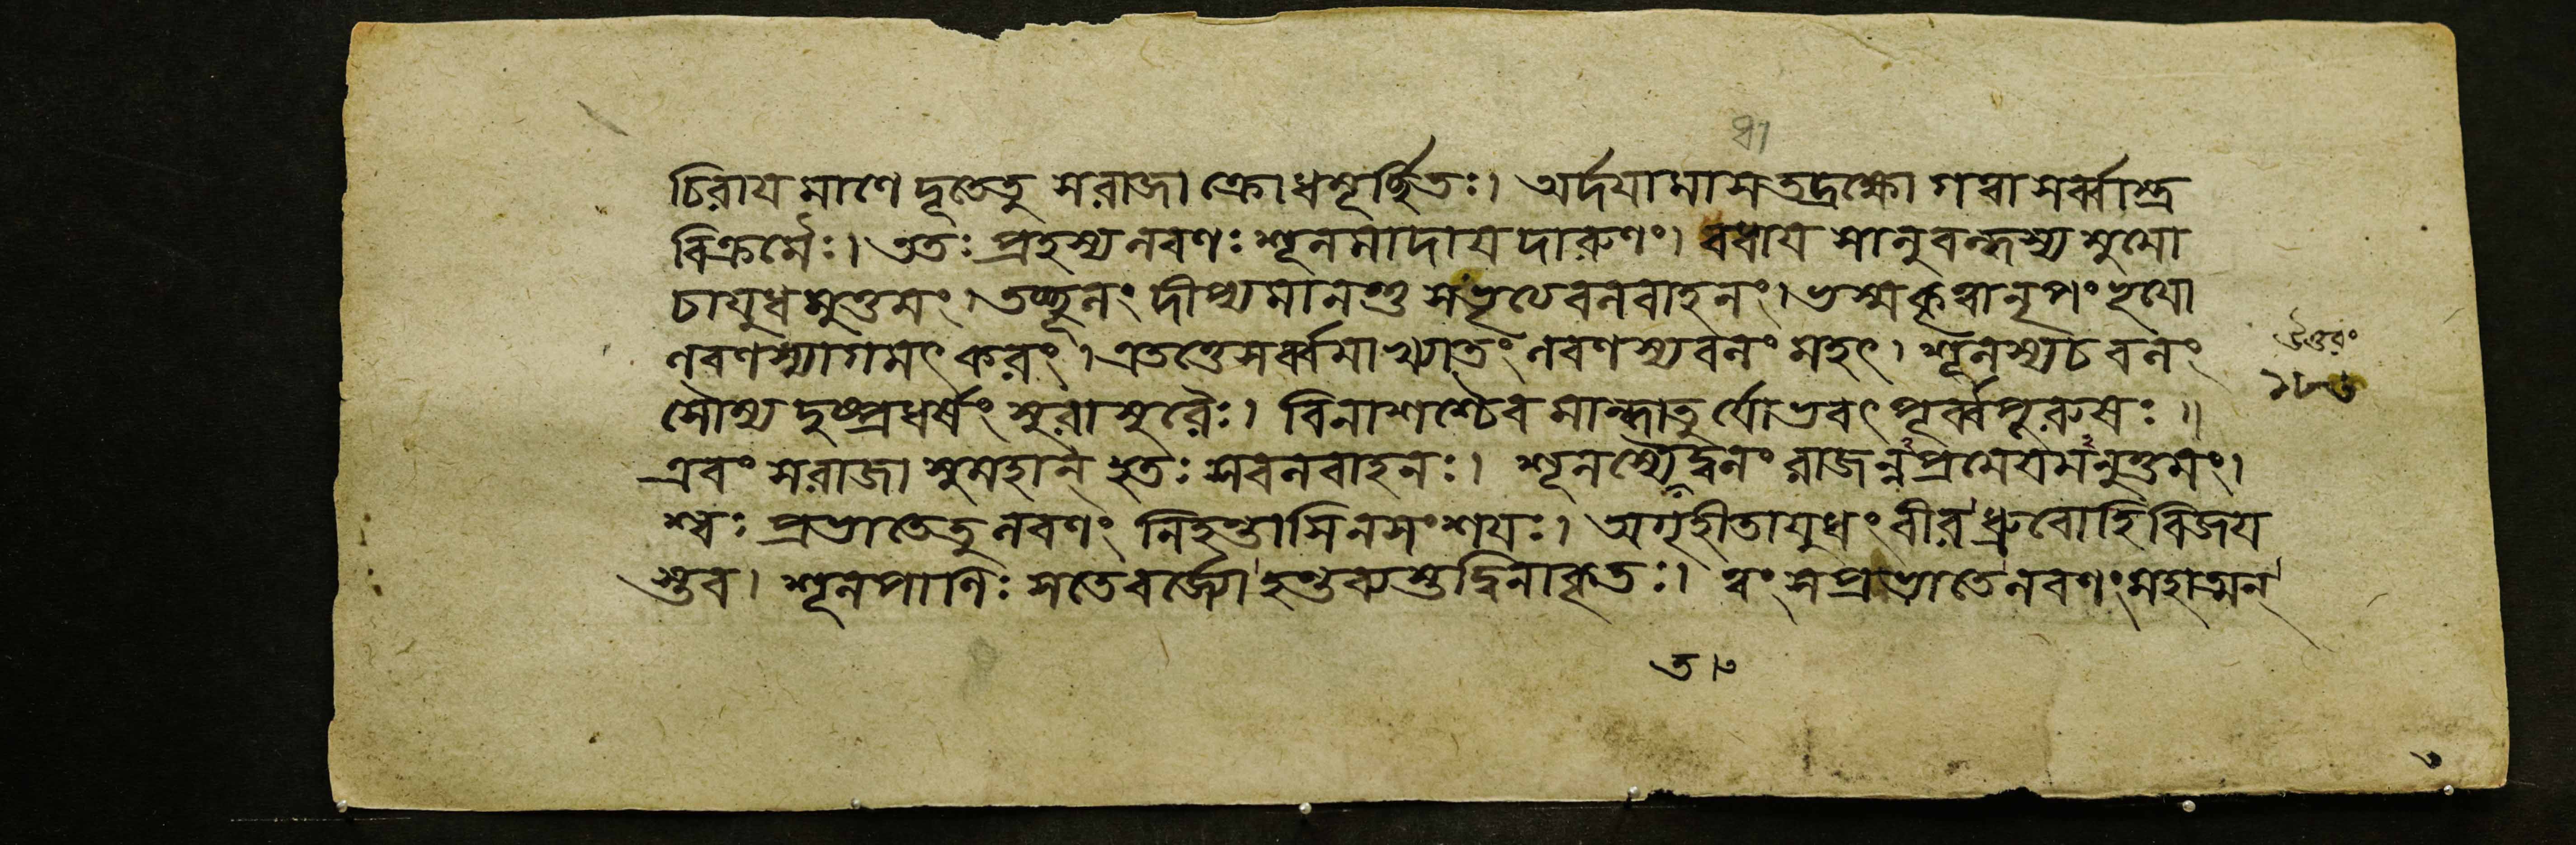 চিরায়মাণে দূতে তু স রাজা ক্রোধমূর্চ্ছিতঃ। অর্দয়ামাস তদ্রক্ষো গত্বা সর্ব্বাস্ত্র
বিক্রমৈঃ। ততঃ প্রহস্য লবণঃ শূলমাদায় দারুণং। বধায় সানুবন্ধস্য মুমো
চায়ুধমুত্তমং। তচ্ছূলং দীপ্যমানস্তু সভৃত্যবলবাহনং। ভস্মকৃত্বা নৃপং ভূয়ো
লবণস্যাগমৎ করং। এতত্তে সর্ব্বমাখ্যাতং লবণস্য বলং মহৎ। শূলস্য চ বলং
সৌম্য দুষ্প্রধর্ষং সুরাসুরৈঃ। বিনাশশ্চৈব মান্ধাতুর্যোভবৎ পূর্ব্বপুরুষঃ॥
এবং স রাজা সুমহান্ হতঃ সবলবাহনঃ। শূলস্যৈতদ্বলং রাজন্নপ্রমেয়মনুত্তমং।
শ্বঃ প্রভাতে তু লবণং নিহন্তাসি ন সংশয়ঃ। অগৃহীতায়ুধং বীর ধ্রুবো হি বিজয়
স্তব। শূলপাণিঃ স তে বর্জ্জ্যো হন্তব্যস্তদ্বিনাকৃতঃ। ত্বং স প্রভাতে লবণং মহাত্মন্
উত্তরং